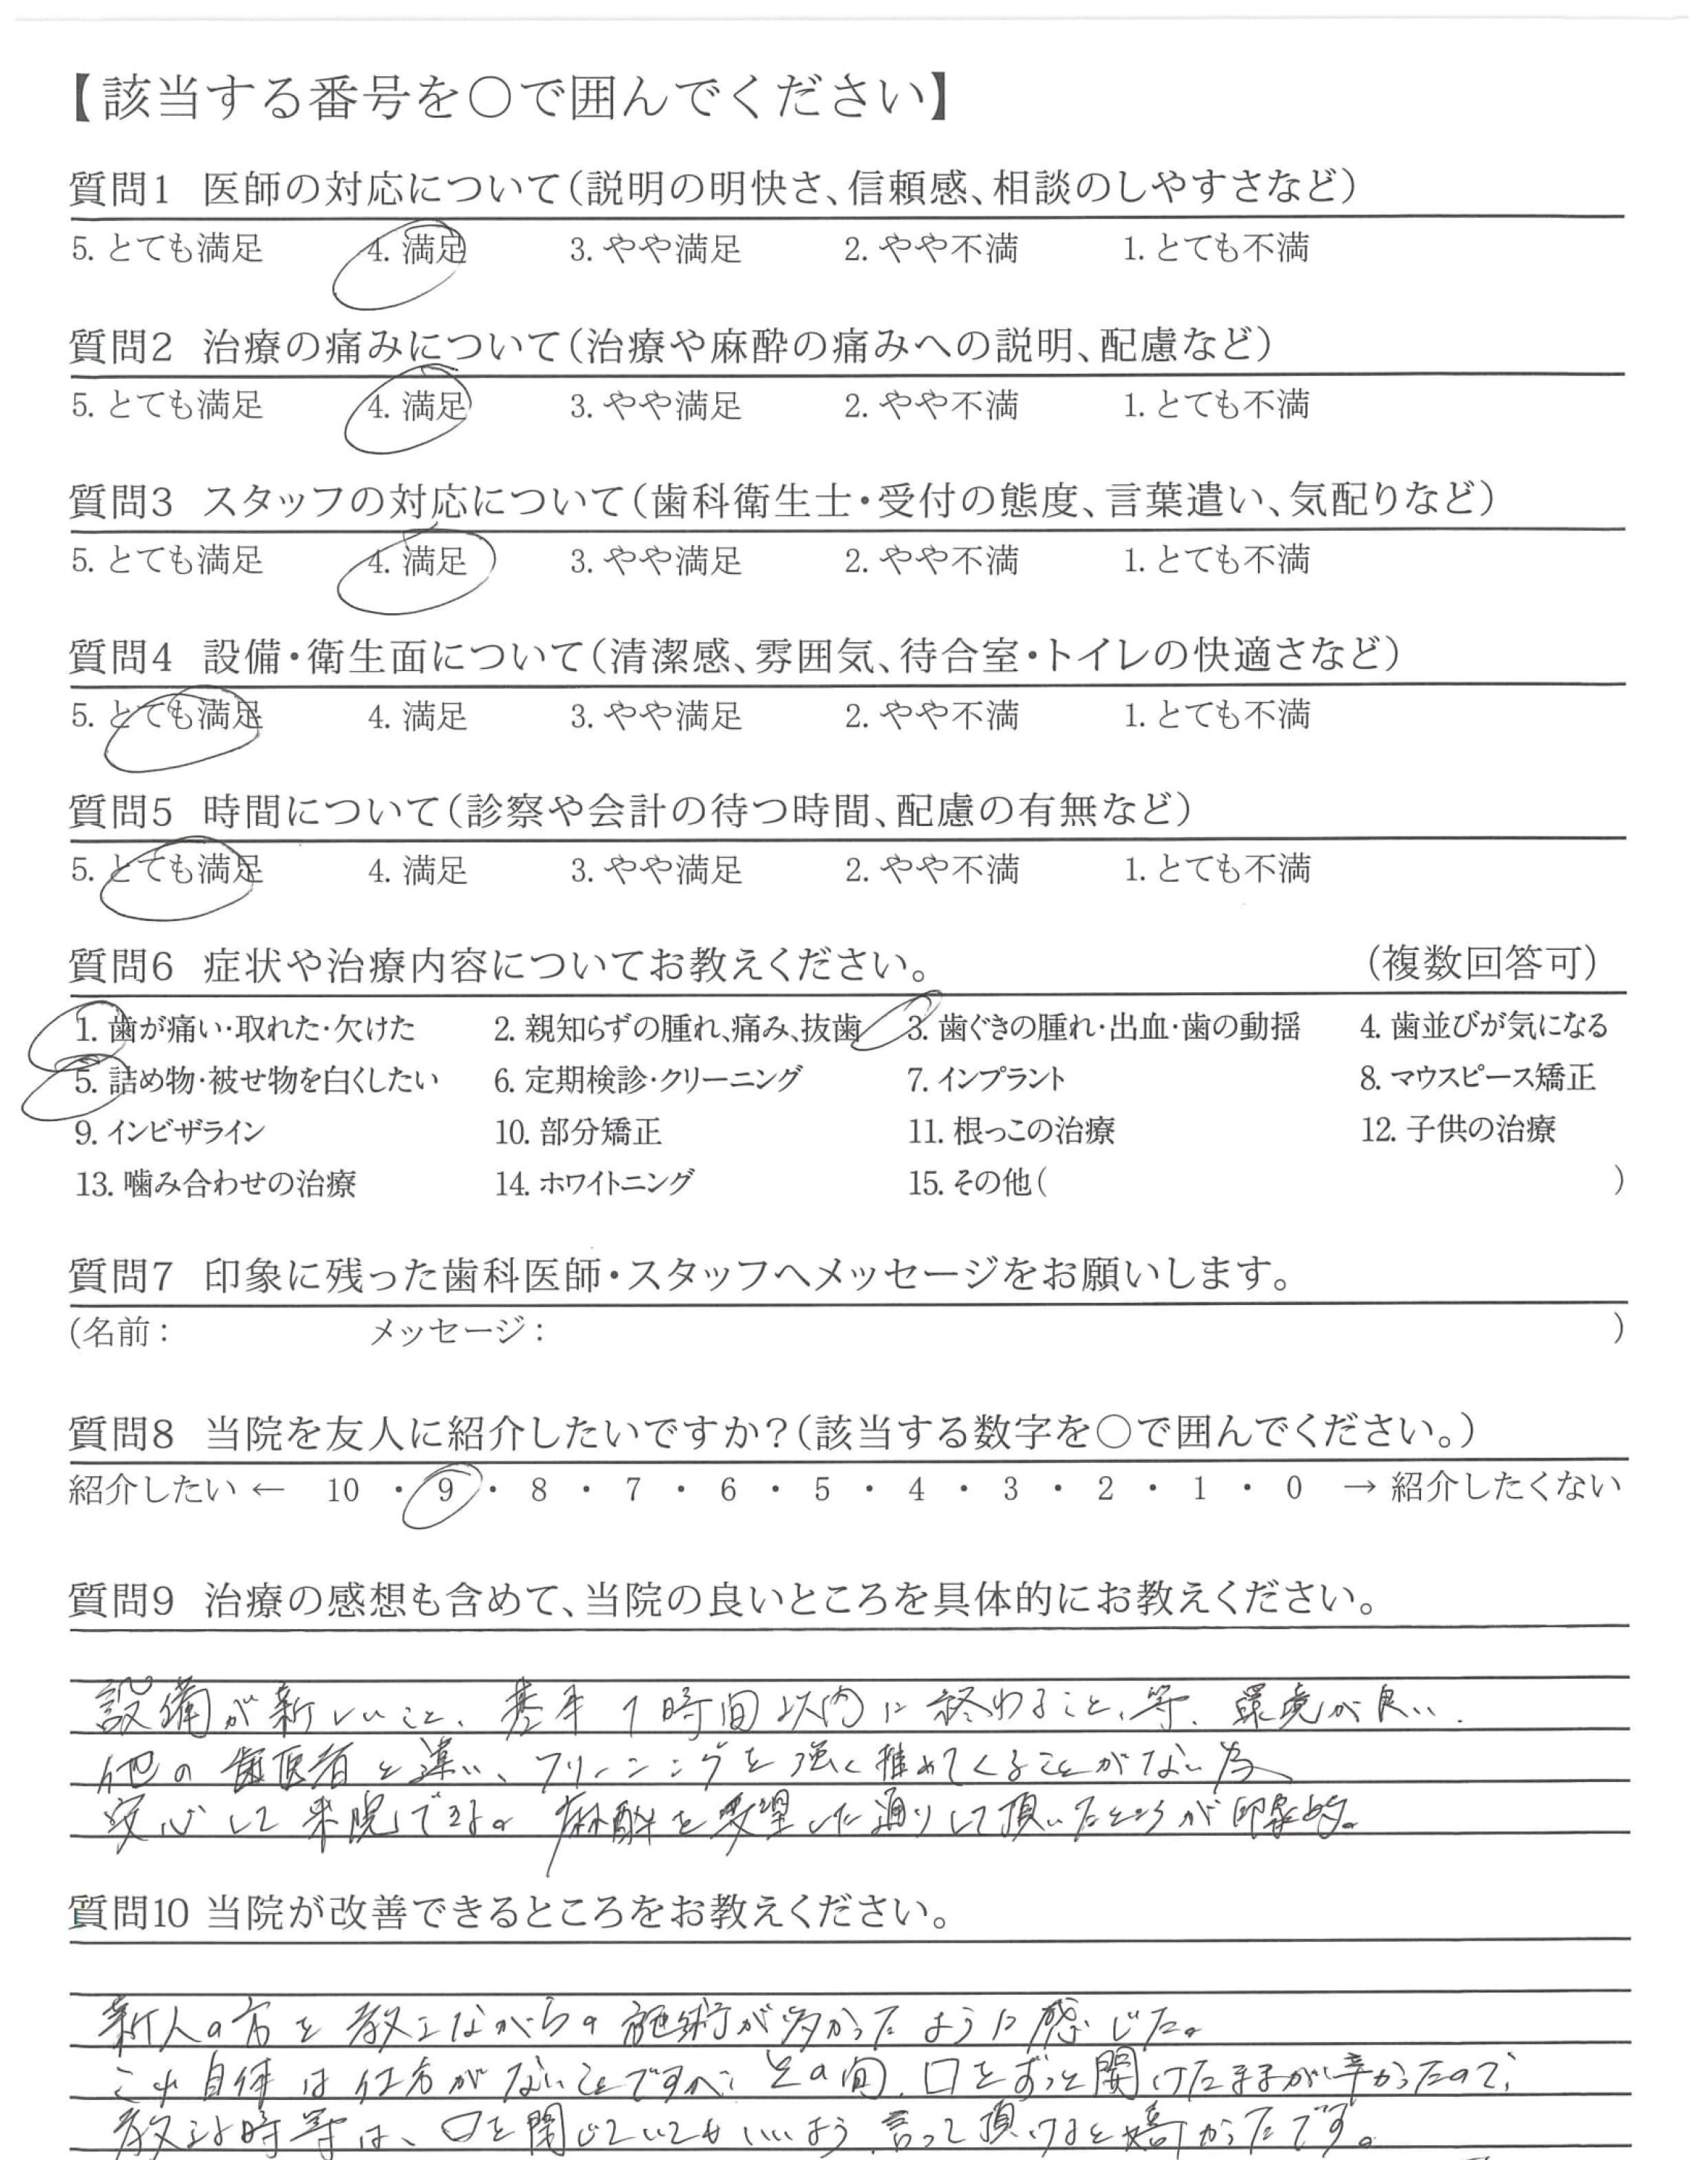 【該当する番号を○で囲んでください】
質問1 医師の対応について(説明の明快さ、信頼感、相談のしやすさなど)
5. とても満足 4. 満足 3. やや満足 2. やや不満 1. とても不満
質問2 治療の痛みについて(治療や麻酔の痛みへの説明、配慮など)
5. とても満足 4. 満足 3. やや満足 2. やや不満 1. とても不満
質問3 スタッフの対応について(歯科衛生士・受付の態度、言葉遣い、気配りなど)
5. とても満足 4. 満足 3. やや満足 2. やや不満 1. とても不満
質問4 設備・衛生面について(清潔感、雰囲気、待合室・トイレの快適さなど)
5. とても満足 4. 満足 3. やや満足 2. やや不満 1. とても不満
質問5 時間について(診察や会計の待つ時間、配慮の有無など)
5. とても満足 4. 満足 3. やや満足 2. やや不満 1. とても不満
質問6 症状や治療内容についてお教えください。 (複数回答可)
1. 歯が痛い・取れた・欠けた 2. 親知らずの腫れ、痛み、抜歯 3. 歯ぐきの腫れ・出血・歯の動揺 4. 歯並びが気になる
5. 詰め物・被せ物を白くしたい 6. 定期検診・クリーニング 7. インプラント 8. マウスピース矯正
9. インビザライン 10. 部分矯正 11. 根っこの治療 12. 子供の治療
13. 噛み合わせの治療 14. ホワイトニング 15. その他( )
質問7 印象に残った歯科医師・スタッフへメッセージをお願いします。
(名前: メッセージ: )
質問8 当院を友人に紹介したいですか?(該当する数字を○で囲んでください。)
紹介したい ← 10 ・ 9 ・ 8 ・ 7 ・ 6 ・ 5 ・ 4 ・ 3 ・ 2 ・ 1 ・ 0 → 紹介したくない
質問9 治療の感想も含めて、当院の良いところを具体的にお教えください。
設備が新しいこと、基本1時間以内に終わること、等、環境が良い.
他の歯医者と違い、クリーニングを強く推めてくることがない為
安心して来院できる。麻酔を要望した通りして頂いたところが印象的。
質問10 当院が改善できるところをお教えください。
新人の方を教えながらの施術が多かったように感じた。
これ自体は仕方がないことですが、その間、口をずっと開けたままが辛かったので、
教える時等は、口を閉じていてもいいよう言って頂けると嬉しかったです。